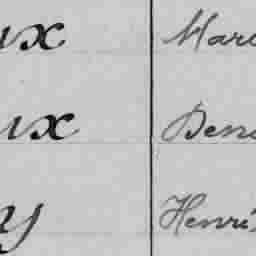 ux Marc
ux Deni
y Henri